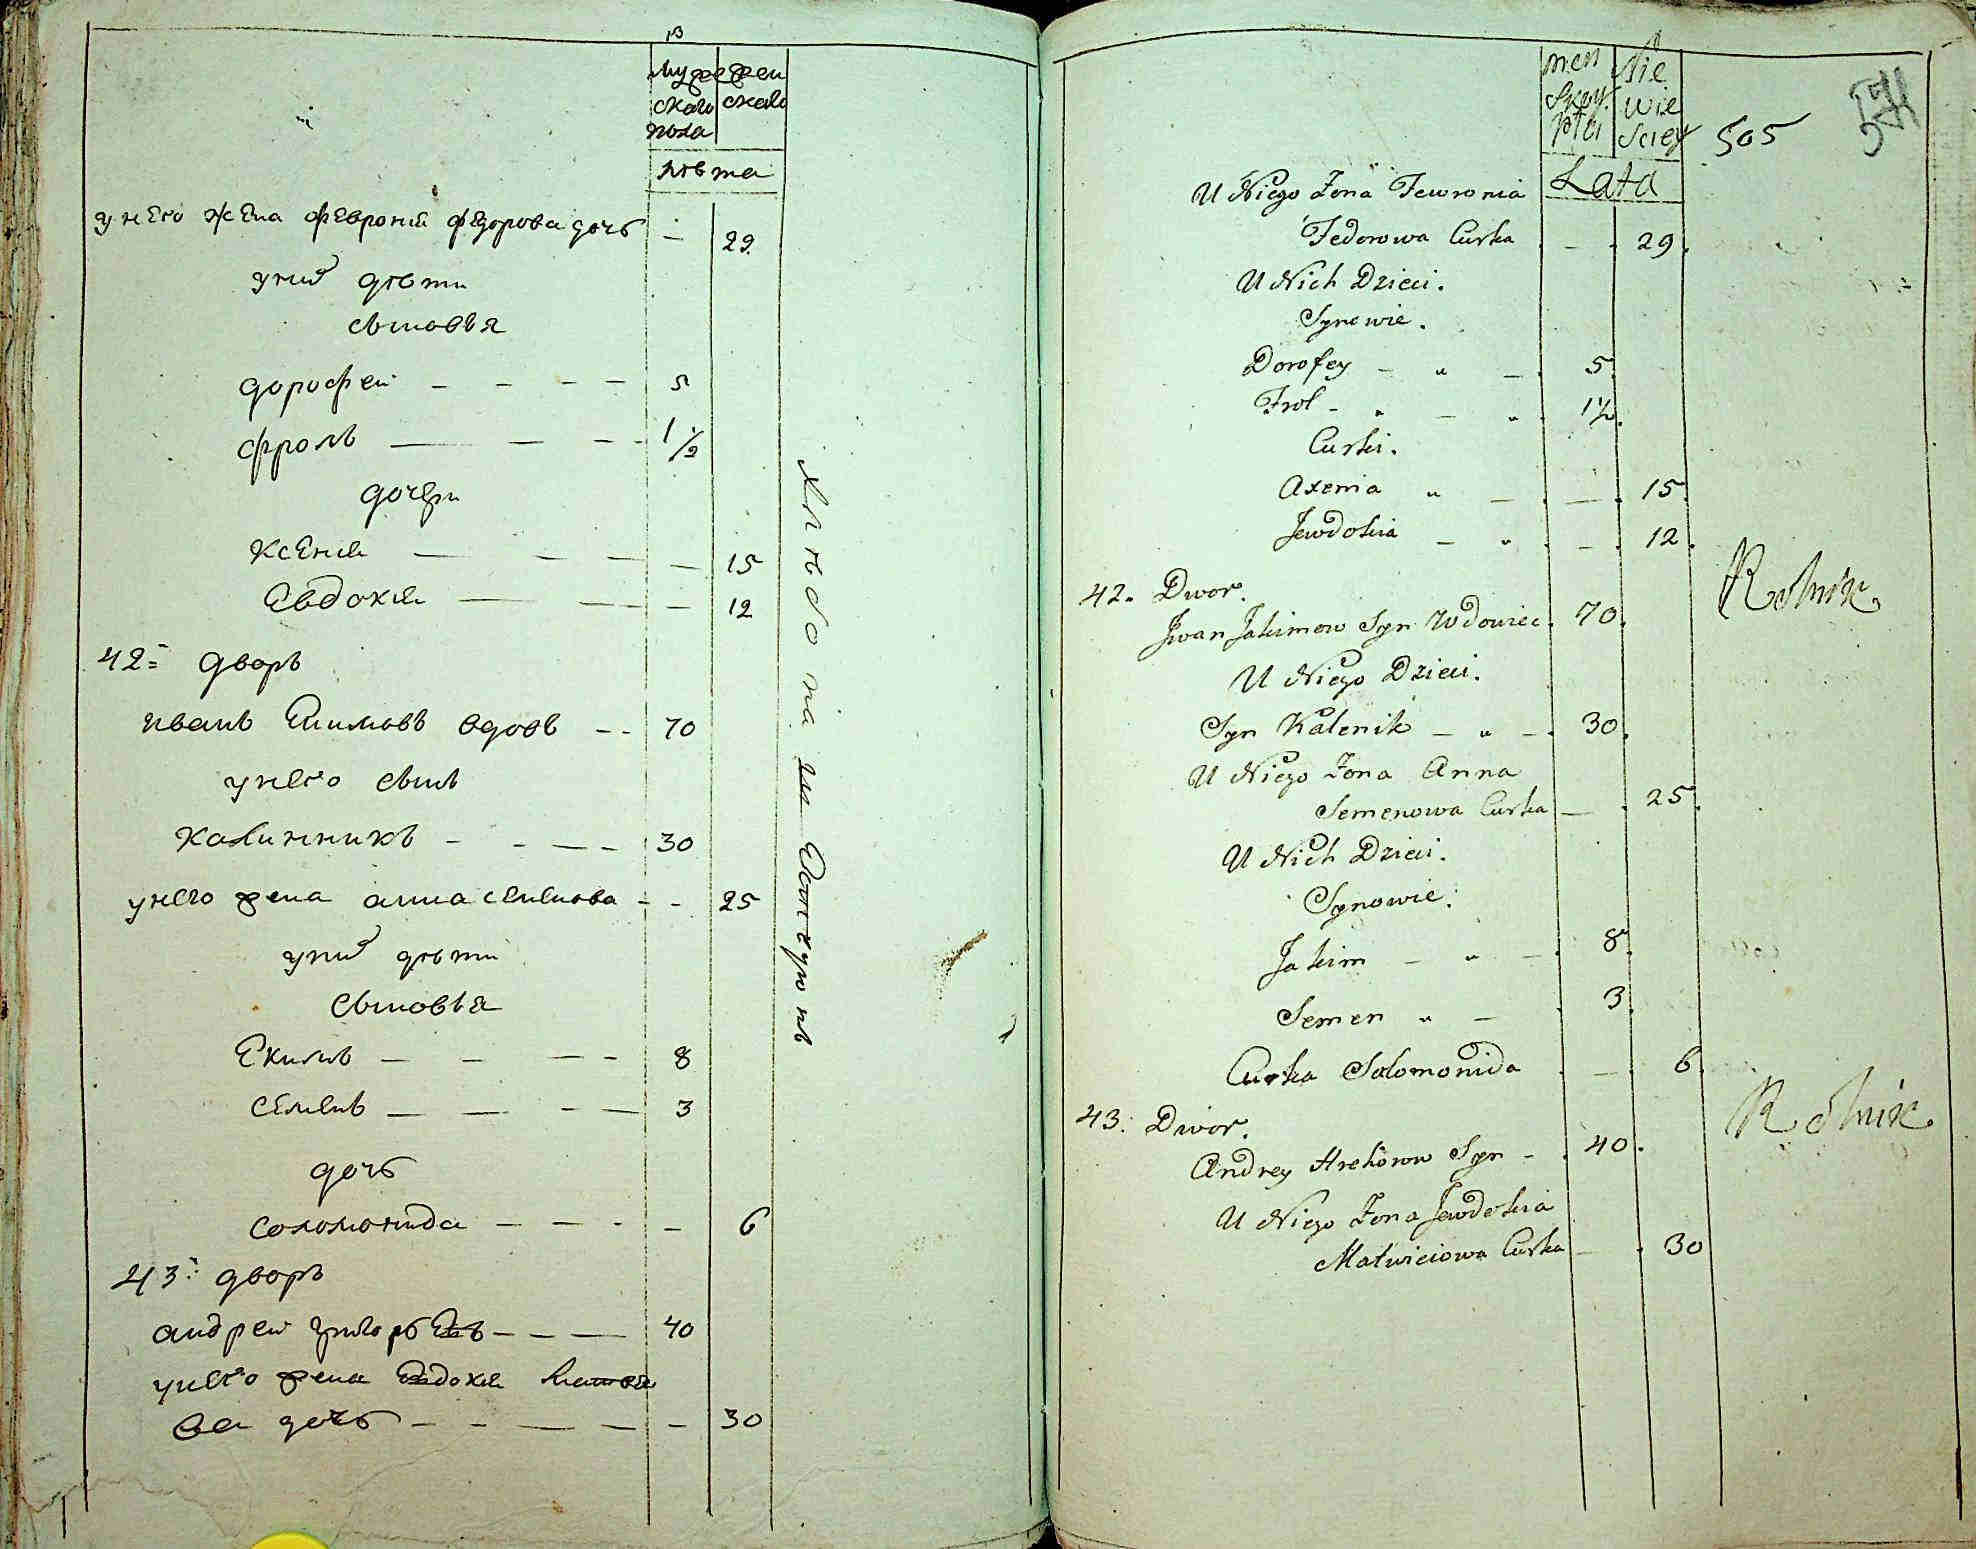 мужескаго пола
женскаго
лѣта
у него жена Феврония Федорова дочь — 29
у них дѣти
сыновья
дорофеи — 5
фролъ — 1 1/2
дочери
ксения — 15
Евдокия — 12
42 дворъ
иванъ Екимовъ вдовъ — 70
у него сынъ
калинникъ — 30
у него жена анна семенова — 25
у них дѣти
сыновья
Екимъ — 8
семенъ — 3
дочь
соломонида — 6
43 дворъ
андреи григорьевъ — 40
у него жена Евдокия матвее
ва дочь — 30
хлѣбопа
Męn
Skoy
Płci
Nie
wie
sciey
505
Lata
U Niego Żona Fewronia
Fedorowa Curka — 29.
U Nich Dzieci.
Synowie.
Dorofey — „ — 5.
Frol — „ — „ 1½.
Curki.
Axenia „ — — 15.
Jewdokia — „ — 12.
42. Dwor.
Rolnik.
Jwan Jakimow Syn Wdowiec. 70.
U Niego Dzieci.
Syn Kalenik — „ — 30.
U Niego Żona Anna
Semenowa Curka — 25.
U Nich Dzieci.
Synowie.
Jakim — „ — 8.
Semen „ — 3.
Curka Solomonida — 6.
43. Dwor.
Rolnik.
Andrey Syn — 40.
U Niego Żona Jewdokia
Matwieiowa Curka — 30